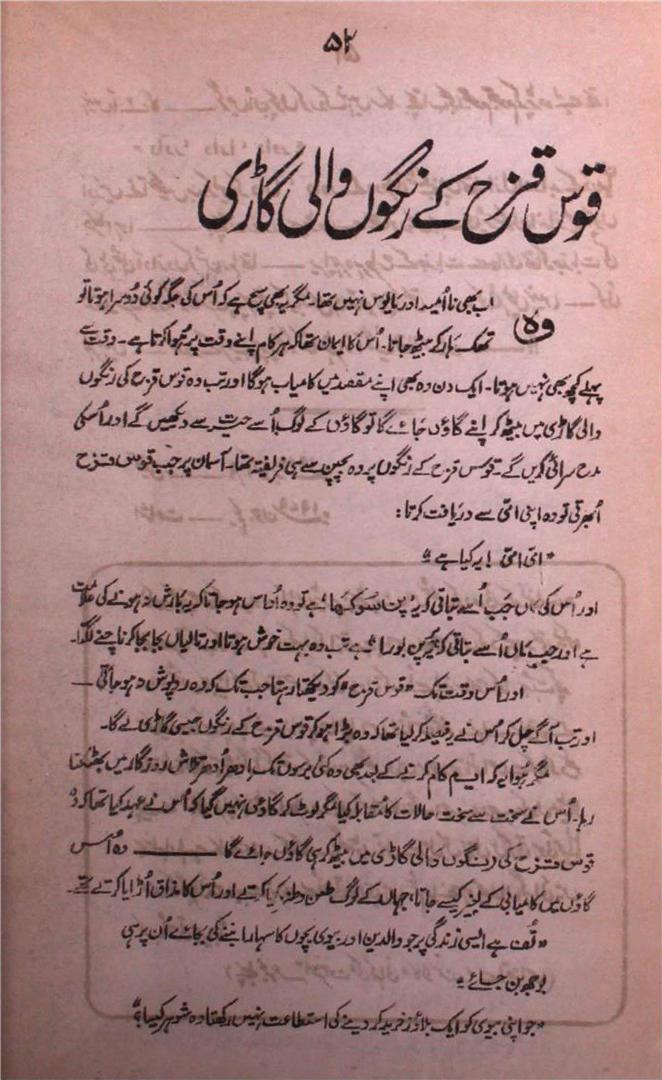 ۵۲
قوس قزح کے رنگوں والی گاڑی
وہ اب بھی نا اُمید اور مایوس نہیں تھا۔ مگر یہ بھی سچ ہے کہ اُس کی جگہ کوئی دُوسرا ہوتا تو
تھک ہار کے بیٹھ جاتا۔ اُس کا ایمان تھا کہ ہر کام اپنے وقت پر ہُوا کرتا ہے۔ وقت سے
پہلے کچھ بھی نہیں ہوتا۔ ایک دن وہ بھی اپنے مقصد میں کامیاب ہوگا اور تب وہ قوس قزح کی رنگوں
والی گاڑی میں بیٹھ کر اپنے گاؤں جائے گا تو گاؤں کے لوگ اُسے حیرت سے دیکھیں گے اور اُسکی
مدح سرائی کریں گے۔ قوس قزح کے رنگوں پر وہ بچپن سے ہی فریفتہ تھا۔ آسمان پر جب قوس قزح
اُبھرتی تو وہ اپنی امّی سے دریافت کرتا:
"امّی امّی! یہ کیا ہے"
اور اُس کی ماں جب اُسے بتاتی کہ یہ پن سوکھا ہے تو وہ اُداس ہو جاتا کہ یہ بارش نہ ہونے کی علامت
ہے اور جب ماں اُسے بتاتی کہ یہ پن بورا ہے تب وہ بہت خوش ہوتا اور تالیاں بجا بجا کر ناچنے لگتا۔
اور اُس وقت تک "قوس قزح" کو دیکھتا رہتا جب تک کہ وہ روپوش نہ ہو جاتی —
اور تب آگے چل کر اُس نے یہ فیصلہ کر لیا تھا کہ وہ بڑا ہو کر قوس قزح کے رنگوں جیسی گاڑی لے گا۔
مگر ہُوا یہ کہ ایم کام کرنے کے بعد بھی وہ کئی برسوں تک اِدھر اُدھر تلاش روزگار میں بھٹکتا
رہا۔ اُس نے سخت سے سخت حالات کا مقابلہ کیا مگر لوٹ کر گاؤں نہیں گیا کہ اُس نے عہد کیا تھا کہ وُہ
قوس قزح کی رنگوں والی گاڑی میں بیٹھ کر ہی گاؤں جائے گا ——— وہ اُس
گاؤں میں کامیابی کے بغیر کیسے جاتا، جہاں کے لوگ طعن و طنز کیا کرتے اور اُس کا مذاق اُڑایا کرتے تھے۔
"تُف ہے ایسی زندگی پر جو والدین اور بیوی بچوں کا سہارا بننے کی بجائے اُن پر ہی
بوجھ بن جائے"
"جو اپنی بیوی کو ایک بلاؤز خرید کر دینے کی استطاعت نہیں رکھتا وہ شوہر کیسا؟"